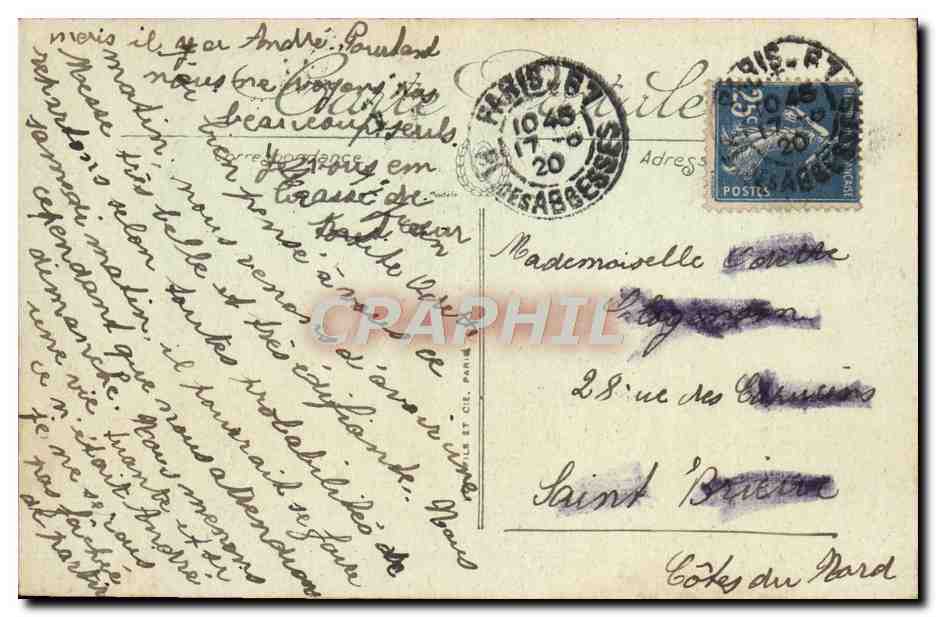 Carte Postale
Correspondance
Adresse
PARIS - 67
10 45
17 - 8
20
Pl. DES ABBESSES
PARIS - 67
10 45
17
20
ABBESSES
25
POSTES
RÉPUBLIQUE FRANÇAISE
bien pensé à vous ce
matin, nous venons d'avoir une
Messe très belle et très édifiante. Nous
repartons selon toutes probabilités
samedi matin, il pourrait se faire
cependant que nous attendions
dimanche. Nous menons
une vie
ce n'était André
je ne serais
pas fâchée
de partir
mais il y a André. Pourtant
nous ne voyons pas
beaucoup seuls.
Trois em
brasse de
tout cœur
Mademoiselle Odette
28 rue des Capucins
Saint Brieuc
Côtes du Nord
FILS ET CIE, PARIS
CRAPHIL